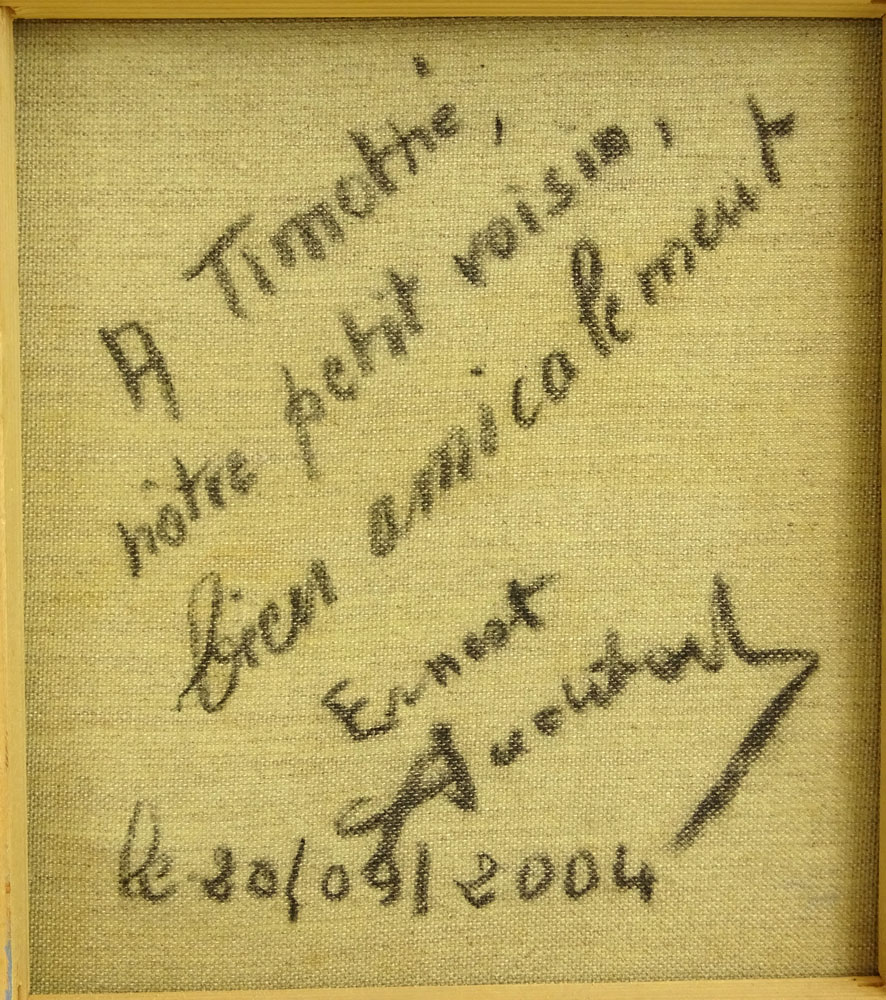 A Timothé,
nôtre petit voisin,
bien amicalement
Ernest
Audibert
le 20/09/2004